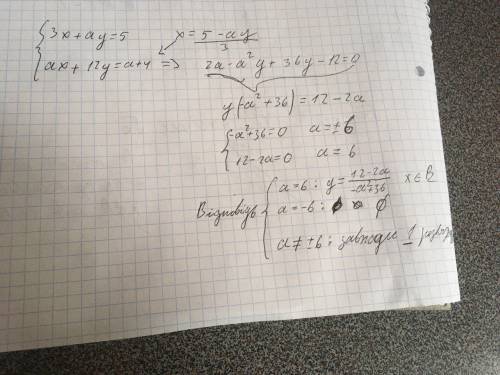 3x+ay=5 x=5-ay/3
ax+12y=a+4 => 2a-a²y+36y-12=0
y(-a²+36)=12-2a
-a²+36=0 a=±6
12-2a=0 a=6
Відповідь a=6: y=12-2a/-a²+36 x∈R
a=-6: ∅
a≠±6: завжди 1